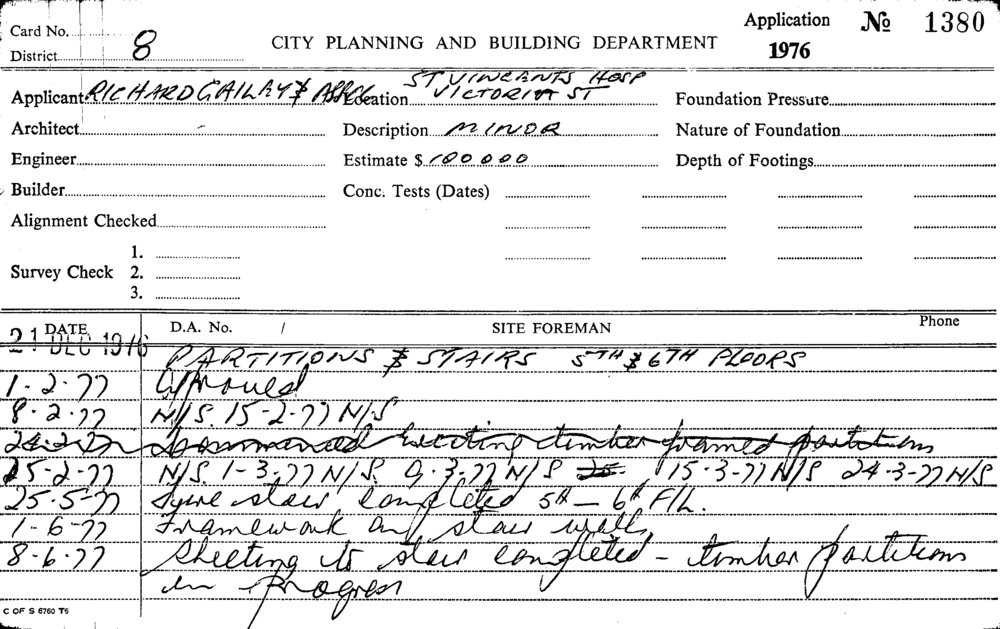 Card No. Application № 1380
District 8 CITY PLANNING AND BUILDING DEPARTMENT 1976
Applicant RICHARD GAILEY & ASSOC Location ST VINCENTS HOSP VICTORIA ST Foundation Pressure
Architect Description MINOR Nature of Foundation
Engineer Estimate $ 100000 Depth of Footings
Builder Conc. Tests (Dates)
Alignment Checked
1.
Survey Check 2.
3.
DATE D.A. No. / SITE FOREMAN Phone
21 DEC 1976 PARTITIONS & STAIRS 5TH & 6TH FLOORS
1-2-77 Approved
8.2.77 N/S. 15-2-77 N/S
24-2-77 Commenced Erecting timber framed partitions
25-2-77 N/S. 1-3.77 N/S. 9.3.77 N/S 15.3-77 N/S 24-3-77 N/S
25.5.77 stair completed 5th - 6th F/L.
1-6-77 Framework on stair walls
8-6.77 Sheeting to stair completed - timber partitions
in progress
C OF S 6760 T6